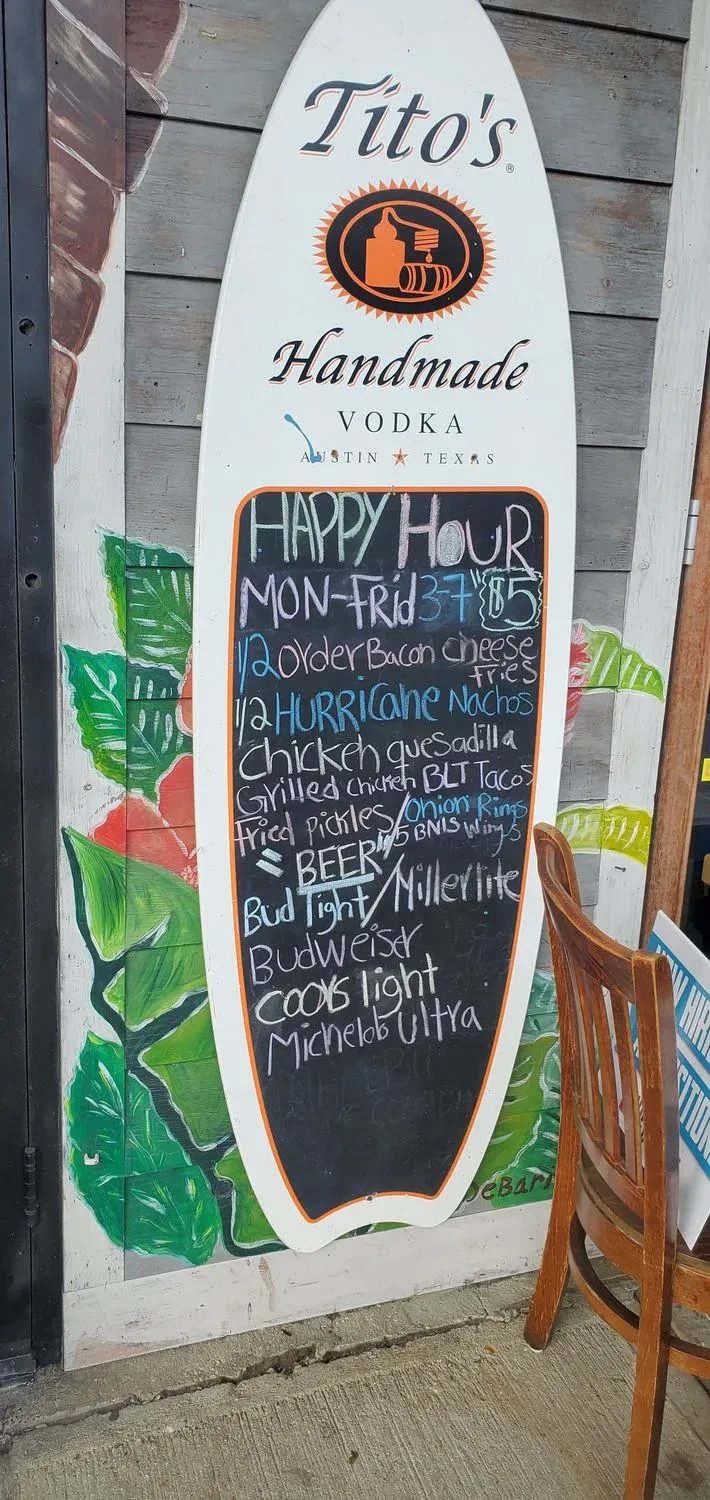 Tito's®
Handmade
VODKA
AUSTIN ★ TEXAS
HAPPY HOUR
MON-Frid 3-7 "$5
1/2 order Bacon cheese
fries
1/2 HURRICANE Nachos
Chicken quesadilla
Grilled chicken BLT Tacos
Fried Pickles/Onion Rings
5 BNLS Wings
BEER
Bud light/Miller lite
Budweiser
COORS light
Michelob Ultra
DeBari